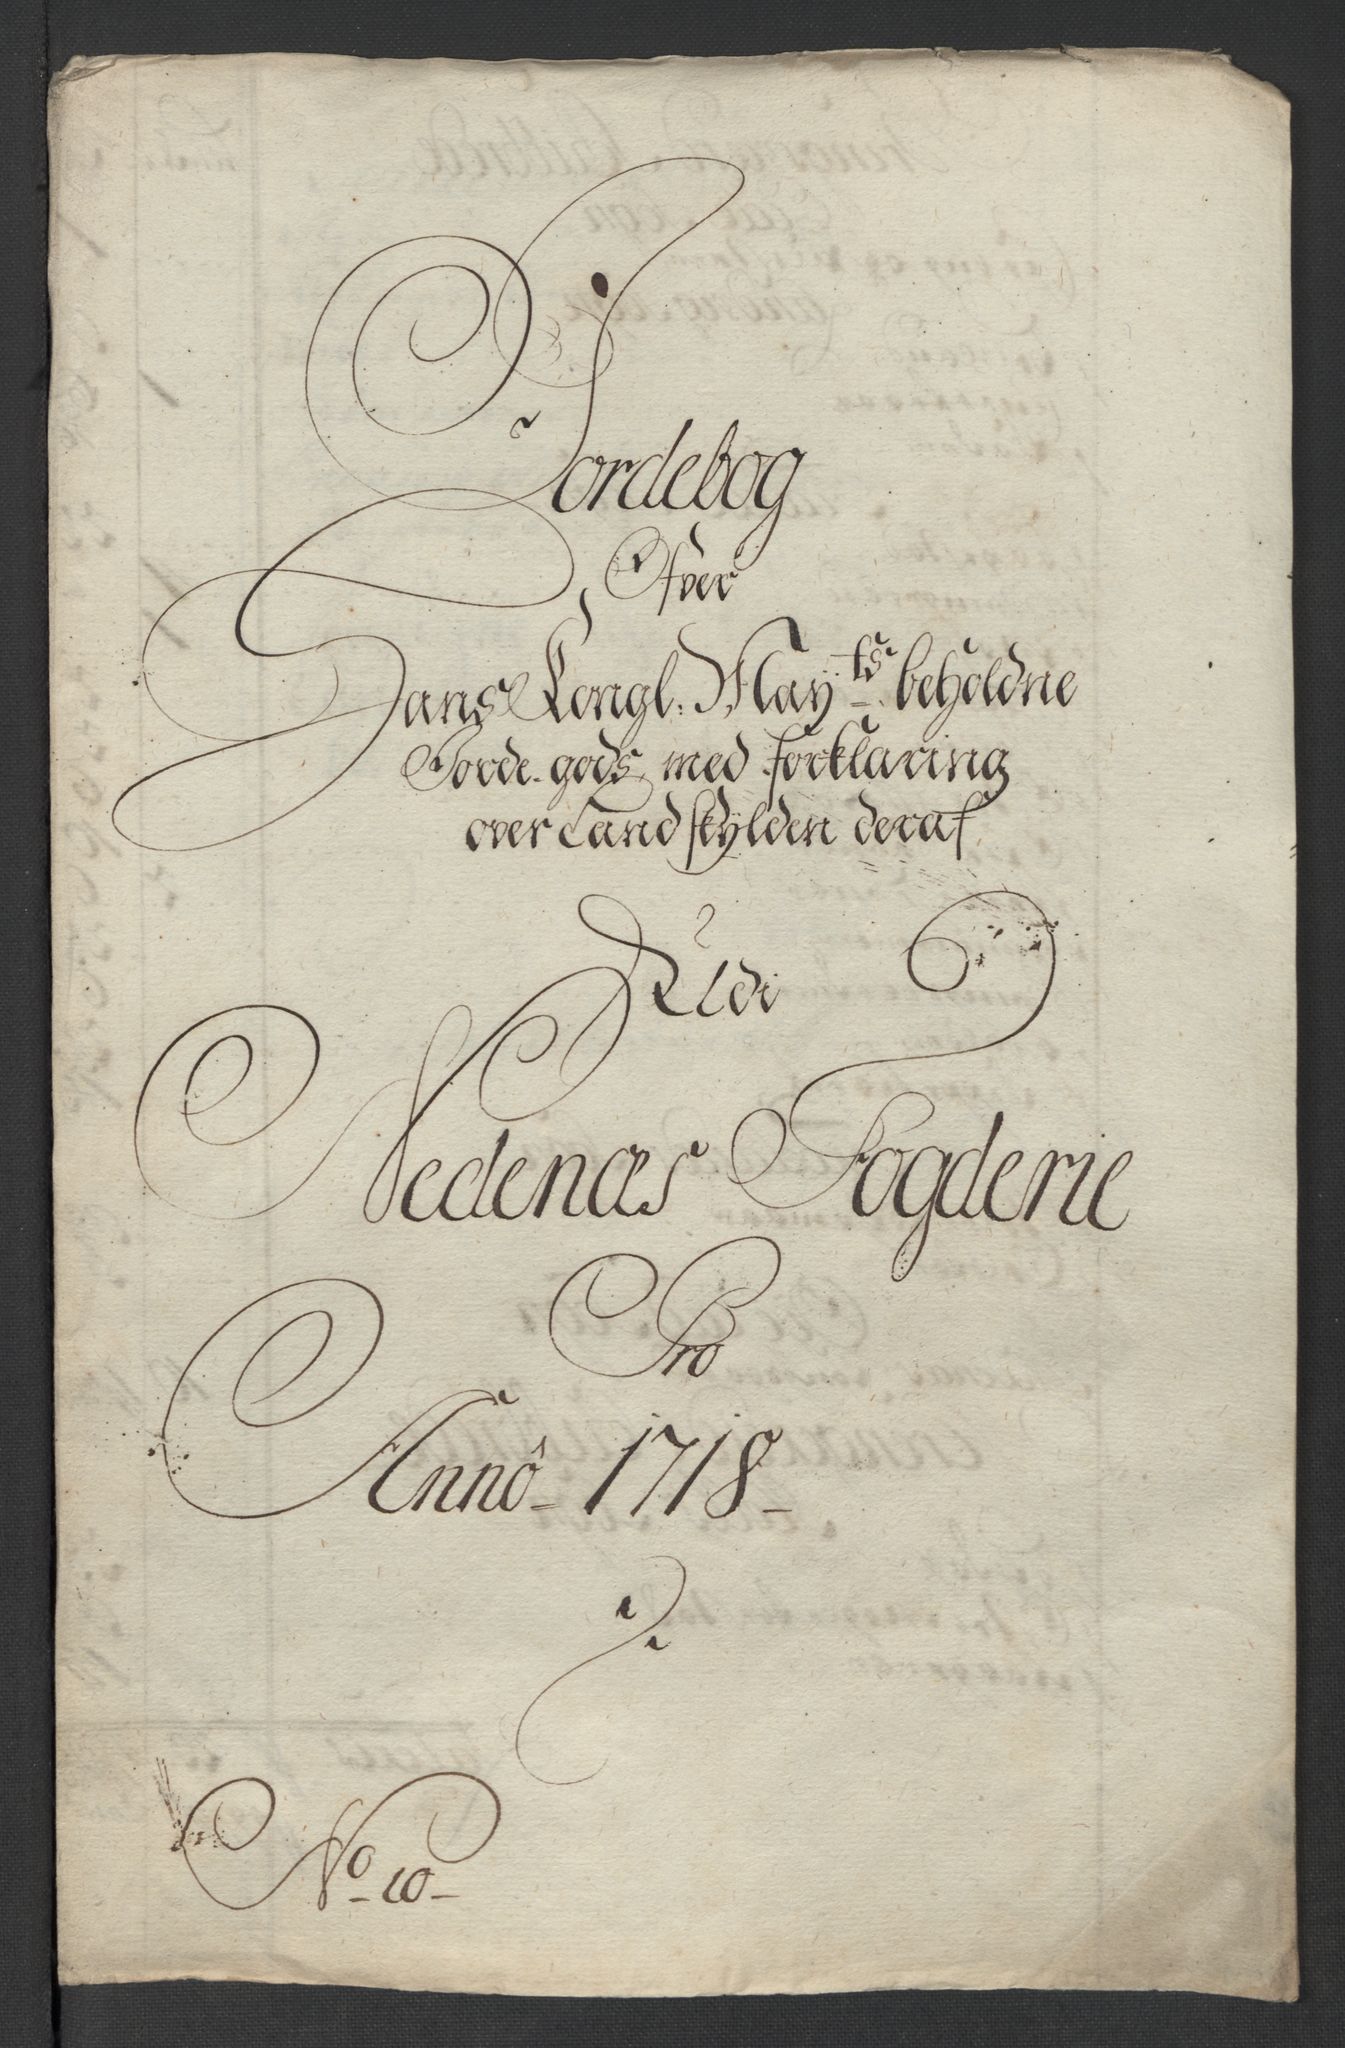 Jordebog
Ofver
Hans Kongl: May:ts beholdne
Jorde-gods med forklaring
over Landskylden deraf
Udi
Nedenæs Fogderie
Pro
Annô 1718
No 10